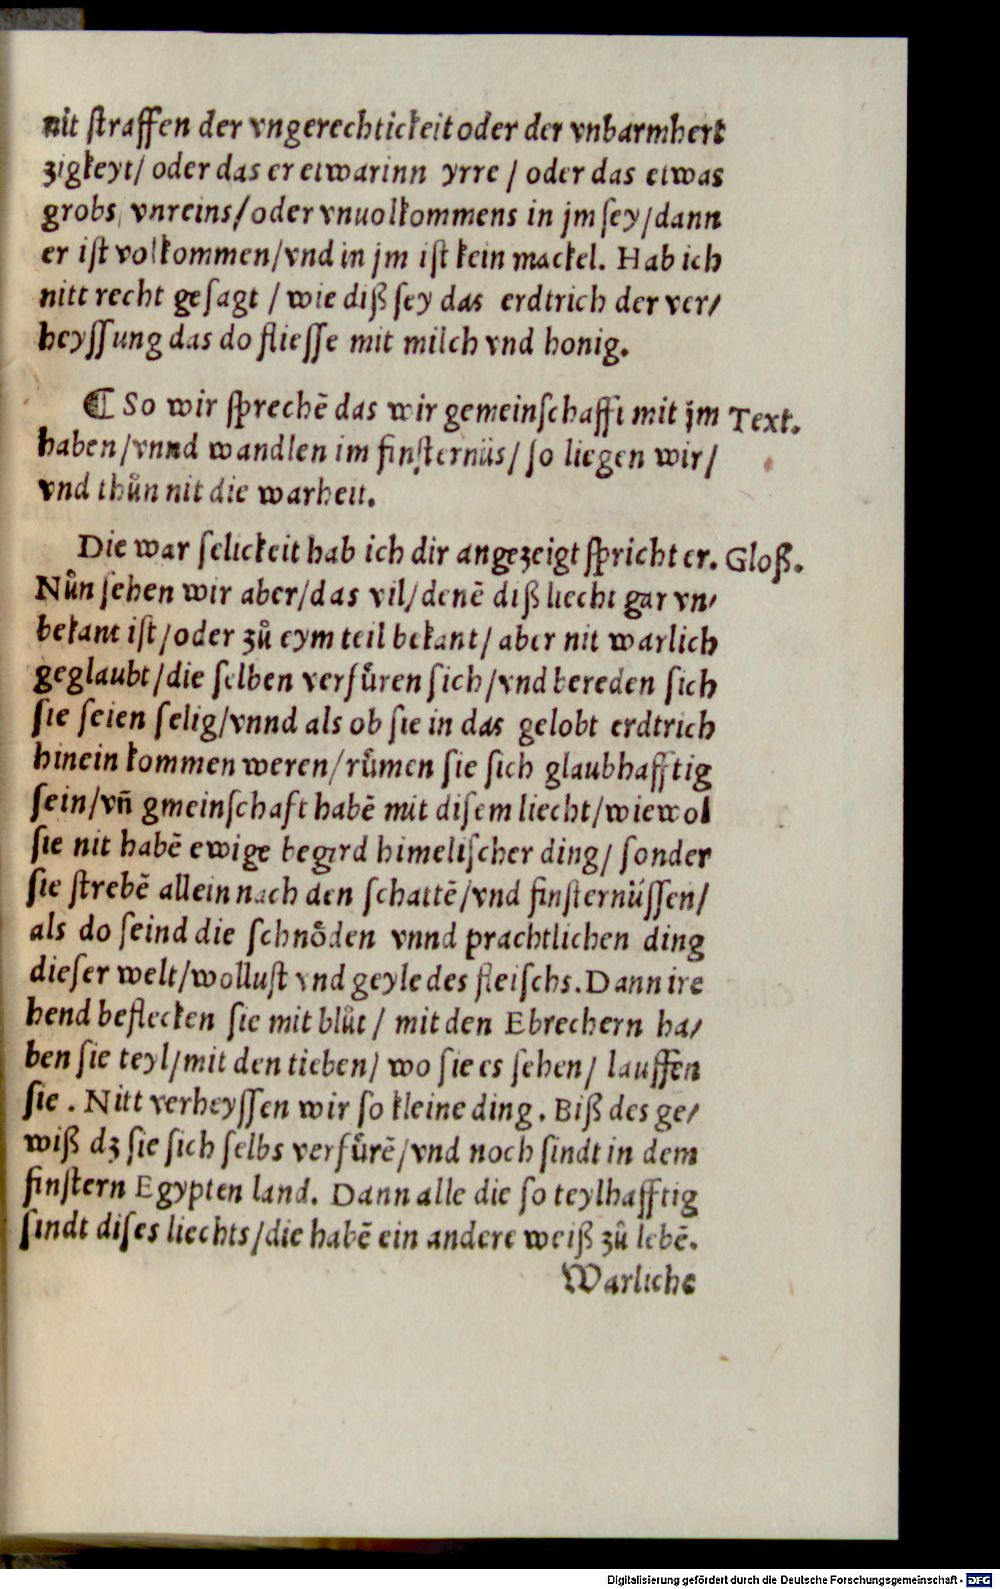 nit ſtraffen der vngerechtickeit oder der vnbarmhertz
zigkeyt/ oder das er etwarinn yrre / oder das etwas
grobs/ vnreins/oder vnuolkommens in jm ſey/dann
er iſt volkommen/vnd in jm iſt kein mackel. Hab ich
nitt recht geſagt / wie diß ſey das erdtrich der ver/
heyſſung das do flieſſe mit milch vnd honig.
¶ So wir ſprechē das wir gemeinſchafft mit jm Text.
haben/vnnd wandlen im finſternüs/ ſo liegen wir/
vnd thůn nit die warheit.
Die war ſelickeit hab ich dir angezeigt ſpricht er. Gloß.
Nůn ſehen wir aber/das vil/denē diß liecht gar vn/
bekant iſt/oder zů eym teil bekant/ aber nit warlich
geglaubt/die ſelben verfůren ſich/vnd bereden ſich
ſie ſeien ſelig/vnnd als ob ſie in das gelobt erdtrich
hinein kommen weren/růmen ſie ſich glaubhafftig
ſein/vñ gmeinſchaft habē mit diſem liecht/wiewol
ſie nit habē ewige begird himeliſcher ding/ ſonder
ſie ſtrebē allein nach den ſchattē/vnd finſternüſſen/
als do ſeind die ſchnöden vnnd prachtlichen ding
dieſer welt/wolluſt vnd geyle des fleiſchs. Dann ire
hend beflecken ſie mit blůt / mit den Ebrechern ha/
ben ſie teyl/mit den tieben/ wo ſie es ſehen/ lauffen
ſie . Nitt verheyſſen wir ſo kleine ding. Biß des ge/
wiß dz ſie ſich ſelbs verfůrē/vnd noch ſindt in dem
finſtern Egypten land. Dann alle die ſo teylhafftig
ſindt diſes liechts/die habē ein andere weiß zů lebē.
Warliche
Digitalisierung gefördert durch die Deutsche Forschungsgemeinschaft - DFG